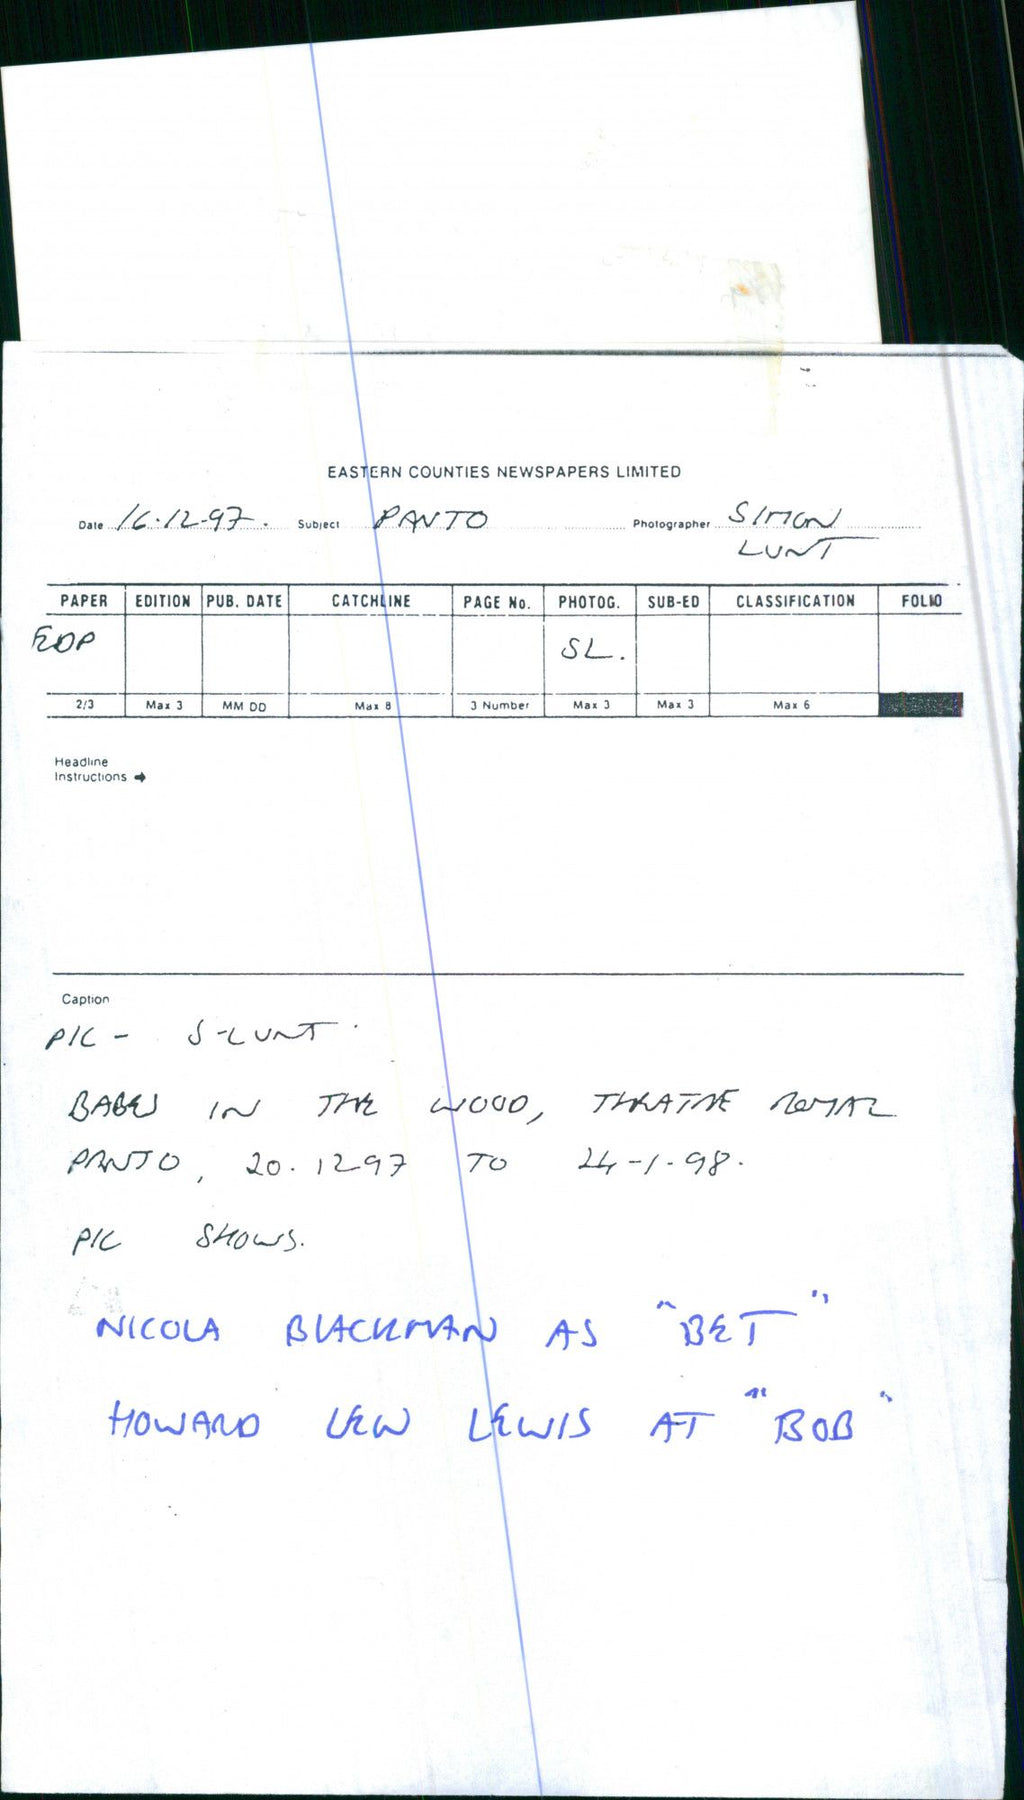 EASTERN COUNTIES NEWSPAPERS LIMITED
Date 16.12.97. Subject PANTO Photographer SIMON
LUNT
PAPER EDITION PUB. DATE CATCHLINE PAGE No. PHOTOG. SUB-ED CLASSIFICATION FOLIO
EDP SL.
2/3 Max 3 MM DD Max 8 3 Number Max 3 Max 3 Max 6
Headline
Instructions ➔
Caption
PIC - S-LUNT.
BABES IN THE WOOD, THEATRE ROYAL
PANTO, 20.1297 TO 24-1-98.
PIC SHOWS.
NICOLA BLACKMAN AS "BET"
HOWARD LEW LEWIS AT "BOB"